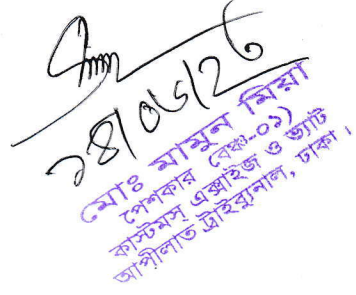 ১৪/০৬/২৬
মোঃ মামুন মিয়া
পেশকার (বেঞ্চ-০১)
কাস্টমস্ এক্সাইজ ও ভ্যাট
আপীলাত ট্রাইব্যুনাল, ঢাকা।